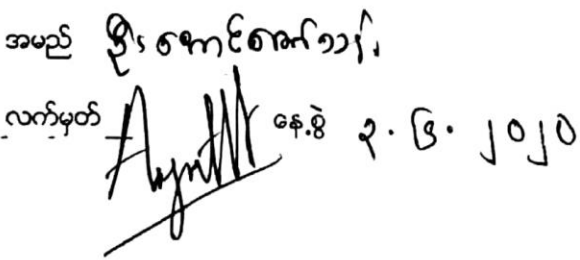 အမည် ဦးအောင်အောင်သန်း
လက်မှတ် နေ့စွဲ ၃.၆.၂၀၂၀